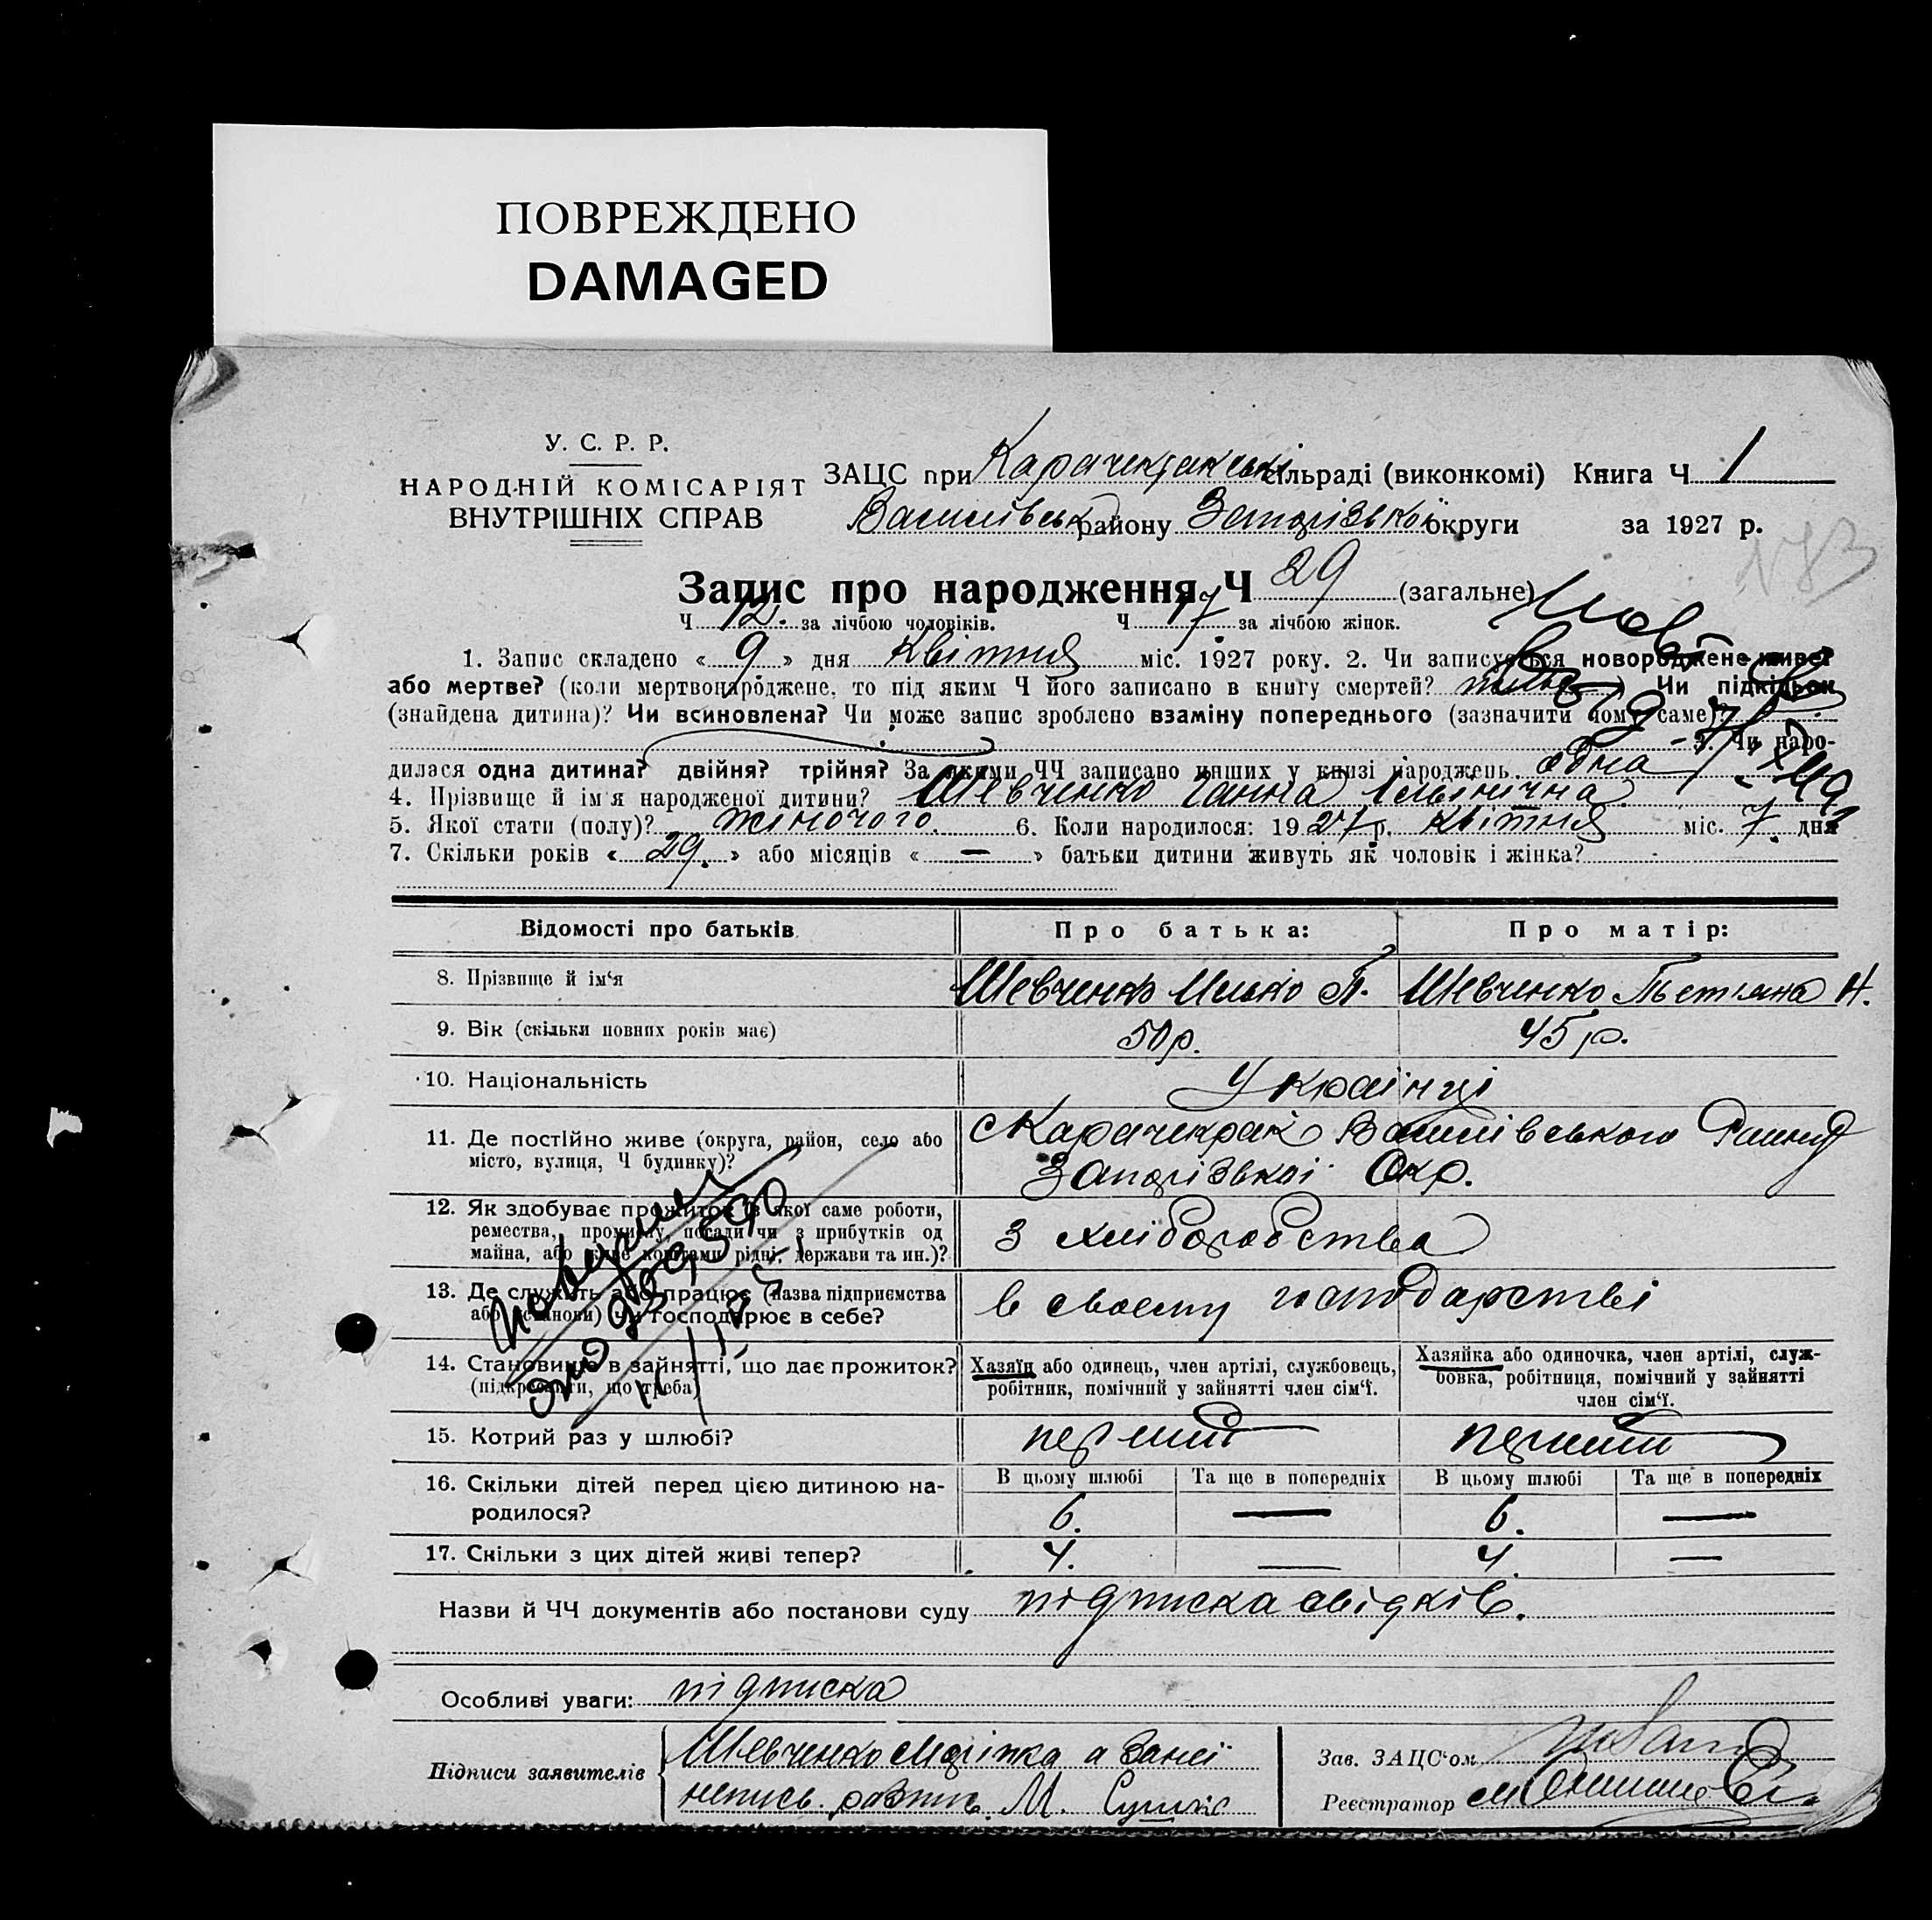 ПОВРЕЖДЕНО
DAMAGED
У. С. Р. Р.
НАРОДНІЙ КОМІСАРІЯТ
ВНУТРІШНІХ СПРАВ
ЗАЦС при Карачекракськ сільраді (виконкомі) Книга Ч 1
Василівськ району Запорізької округи за 1927 р.
183
Запис про народження Ч 29 (загальне)
Ч 12. за лічбою чоловіків. Ч 17 за лічбою жінок.
1. Запис складено « 9 » дня Квітня міс. 1927 року. 2. Чи записується новороджене живе?
або мертве? (коли мертвонароджене, то під яким Ч його записано в книгу смертей? ) Чи підкідьок
(знайдена дитина)? Чи всиновлена? Чи може запис зроблено взаміну попереднього (зазначити чому саме)?
3. Чи наро-
дилася одна дитина? двійня? трійня? За якими ЧЧ записано инших у книзі народжень. одна
4. Прізвище й ім'я народженої дитини? Шевченко Ганна
5. Якої стати (полу)? жіночого. 6. Коли народилося: 1927 р. квітня міс. 7. дня
7. Скільки років « 29. » або місяців « — » батьки дитини живуть як чоловік і жінка?
Відомості про батьків Про батька: Про матір:
8. Прізвище й ім'я Шевченко Илько П. Шевченко Тьетяна Н.
9. Вік (скільки повних років має) 50 р. 45 р.
10. Національність Украінці
11. Де постійно живе (округа, район, село або
місто, вулиця, Ч будинку)?
с Карачекрак Василівського Району
Запорізькоі Окр.
12. Як здобуває прожиток (з якої саме роботи,
ремества, промислу, посади чи з прибутків од
майна, або живе коштами рідні, держави та ин.)?
з хліборобства
13. Де служить або працює (назва підприємства
або установи) чи господарює в себе?
в своему господарстві
14. Становище в зайнятті, що дає прожиток?
(підкреслити, що треба)
Хазяїн або одинець, член артілі, службовець,
робітник, помічний у зайнятті член сім'ї.
Хазяйка або одиночка, член артілі, служ-
бовка, робітниця, помічний у зайнятті
член сім'ї.
15. Котрий раз у шлюбі? перший перший
16. Скільки дітей перед цією дитиною на-
родилося?
В цьому шлюбі Та ще в попередніх В цьому шлюбі Та ще в попередніх
6. — 6. —
17. Скільки з цих дітей живі тепер? 4. — 4. —
Назви й ЧЧ документів або постанови суду підписка свідків.
Особливі уваги: підписка
Підписи заявителів
Шевченко Мотіжка а Занеї
непись. розпис. М.
Зав. ЗАЦС'ом
Реєстратор